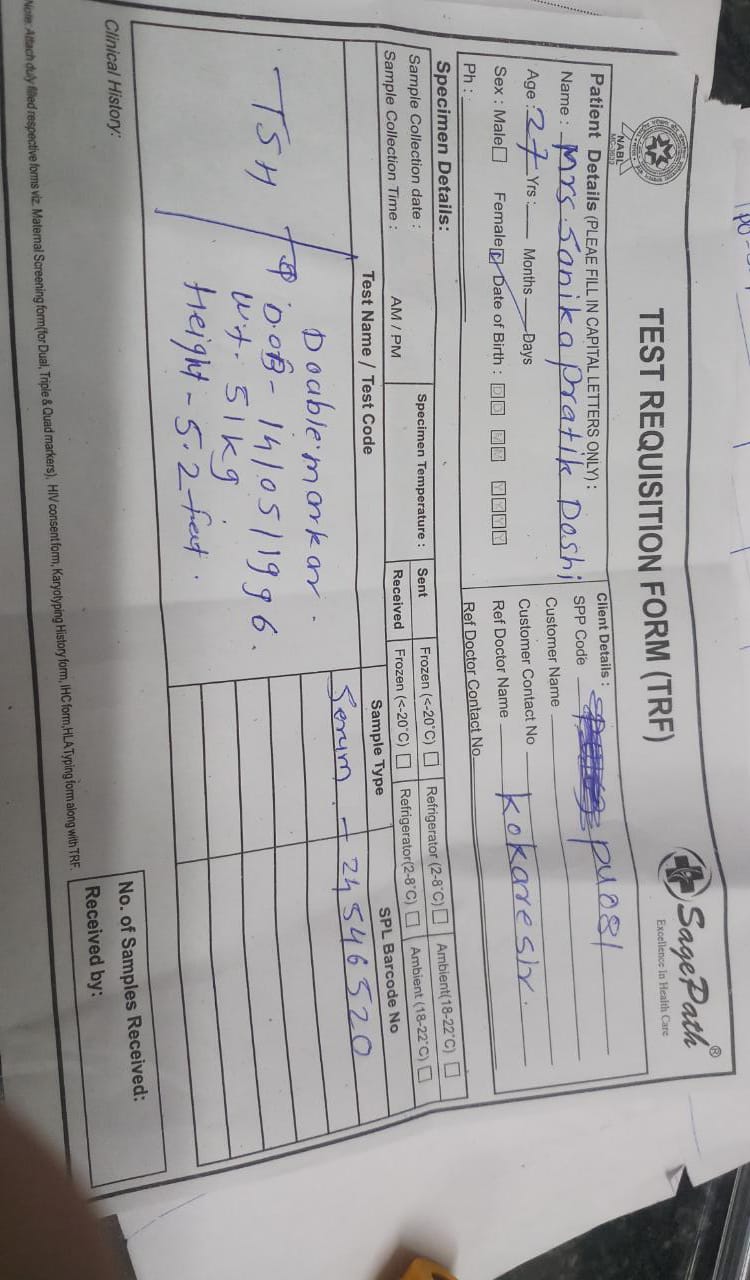 TEST REQUISITION FORM (TRF)
SagePath®
Excellence in Health Care
NABL
Patient Details (PLEAE FILL IN CAPITAL LETTERS ONLY) :
Name : Mrs. Sanika Pratik Dashi
Age : 27 Yrs : Months Days
Sex : Male Female Date of Birth : DD MM YYYY
Ph :
Client Details :
SPP Code PU081
Customer Name
Customer Contact No
Ref Doctor Name kokare sir.
Ref Doctor Contact No
Specimen Details:
Sample Collection date :
Sample Collection Time : AM / PM
Specimen Temperature :
Sent Frozen (<-20°C) Refrigerator (2-8°C) Ambient(18-22°C)
Received Frozen (<-20°C) Refrigerator(2-8°C) Ambient (18-22°C)
Test Name / Test Code Sample Type SPL Barcode No
Doublemarkar. Serum - 24546520
TSH
D.O.B - 14/05/1996.
wt. 51kg.
Height - 5.2 feet.
Clinical History:
No. of Samples Received:
Received by:
Note: Attach duly filled respective forms viz. Maternal Screening form(for Dual, Triple & Quad markers), HIV consent form, Karyotyping History form, IHC form, HLA Typing form along with TRF.